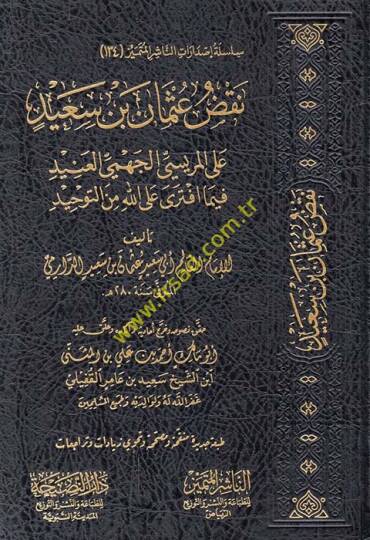 سلسلة إصدارات الناشر المتميز (١٣٤)
نقض عثمان بن سعيد
على المريسي الجهمي العنيد
فيما افترى على الله من التوحيد
تأليف
الإمام أبي سعيد عثمان بن سعيد الدارمي
سنة ٢٨٠ هـ
حقق نصوصه وخرج أحاديثه وعلق عليه
أبو مالك أحمد بن علي بن المثنى
ابن الشيخ سعيد بن عامر القفيلي
غفر الله له ولوالديه ولجميع المسلمين
طبعة جديدة منقحة ومصححة وتحوي زيادات وتراجعات
الناشر المتميز
للطباعة والنشر والتوزيع
الرياض
دار النصيحة
للطباعة والنشر والتوزيع
المدينة النبوية
نقض عثمان بن سعيد
www.irsad.com.tr